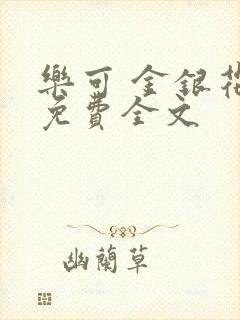 樂可 金銀花
免費全文
幽蘭草